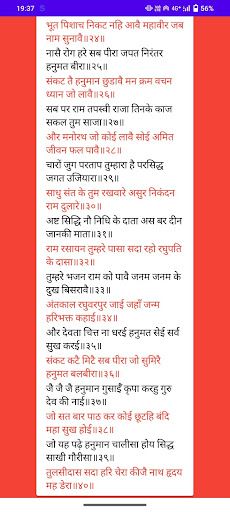 19:37 S 4G+ 56%
भूत पिशाच निकट नहि आवै महावीर जब
नाम सुनावै॥२४॥
नासै रोग हरे सब पीरा जपत निरंतर
हनुमत बीरा॥२५॥
संकट तै हनुमान छुडावै मन क्रम वचन
ध्यान जो लावै॥२६॥
सब पर राम तपस्वी राजा तिनके काज
सकल तुम साजा॥२७॥
और मनोरथ जो कोई लावै सोई अमित
जीवन फल पावै॥२८॥
चारों जुग परताप तुम्हारा है परसिद्ध
जगत उजियारा॥२९॥
साधु संत के तुम रखवारे असुर निकंदन
राम दुलारे॥३०॥
अष्ट सिद्धि नौ निधि के दाता अस बर दीन
जानकी माता॥३१॥
राम रसायन तुम्हरे पासा सदा रहो रघुपति
के दासा॥३२॥
तुम्हरे भजन राम को पावै जनम जनम के
दुख बिसरावै॥३३॥
अंतकाल रघुवरपुर जाई जहाँ जन्म
हरिभक्त कहाई॥३४॥
और देवता चित्त ना धरई हनुमत सेई सर्व
सुख करई॥३५॥
संकट कटै मिटै सब पीरा जो सुमिरै
हनुमत बलबीरा॥३६॥
जै जै जै हनुमान गुसाईँ कृपा करहु गुरु
देव की नाई॥३७॥
जो सत बार पाठ कर कोई छूटहि बंदि
महा सुख होई॥३८॥
जो यह पढ़े हनुमान चालीसा होय सिद्ध
साखी गौरीसा॥३९॥
तुलसीदास सदा हरि चेरा कीजै नाथ हृदय
मह डेरा॥४०॥